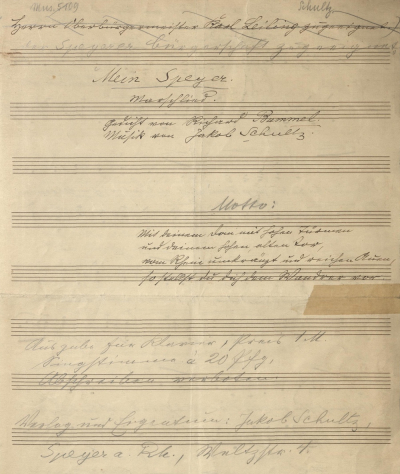 Mus. 5109
Schultz
Herrn Oberbürgermeister Karl Leiling zugeeignet
der Speyerer Bürgerschaft zugeeignet,
Mein Speyer.
Marschlied.
Gedicht von Richard Bummel.
Musik von Jakob Schultz.
Motto:
Mit deinem Dom mit hohen Türmen
und deinem hohen alten Tor,
vom Rhein umkränzt und reichen Auen,
so stellst du dich dem Wandrer vor.
Ausgabe für Klavier, Preis 1 M
Singstimme a 20 Pfg,
Abschreiben verboten.
Verlag und Eigentum: Jakob Schultz,
Speyer a. Rh.,